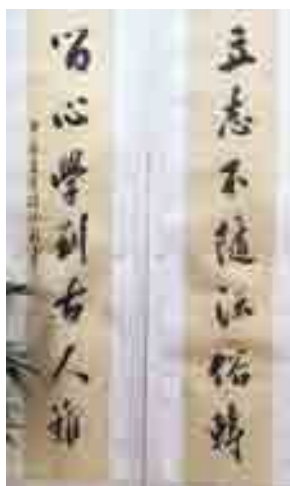 立志不随流俗轉
留心學到古人難